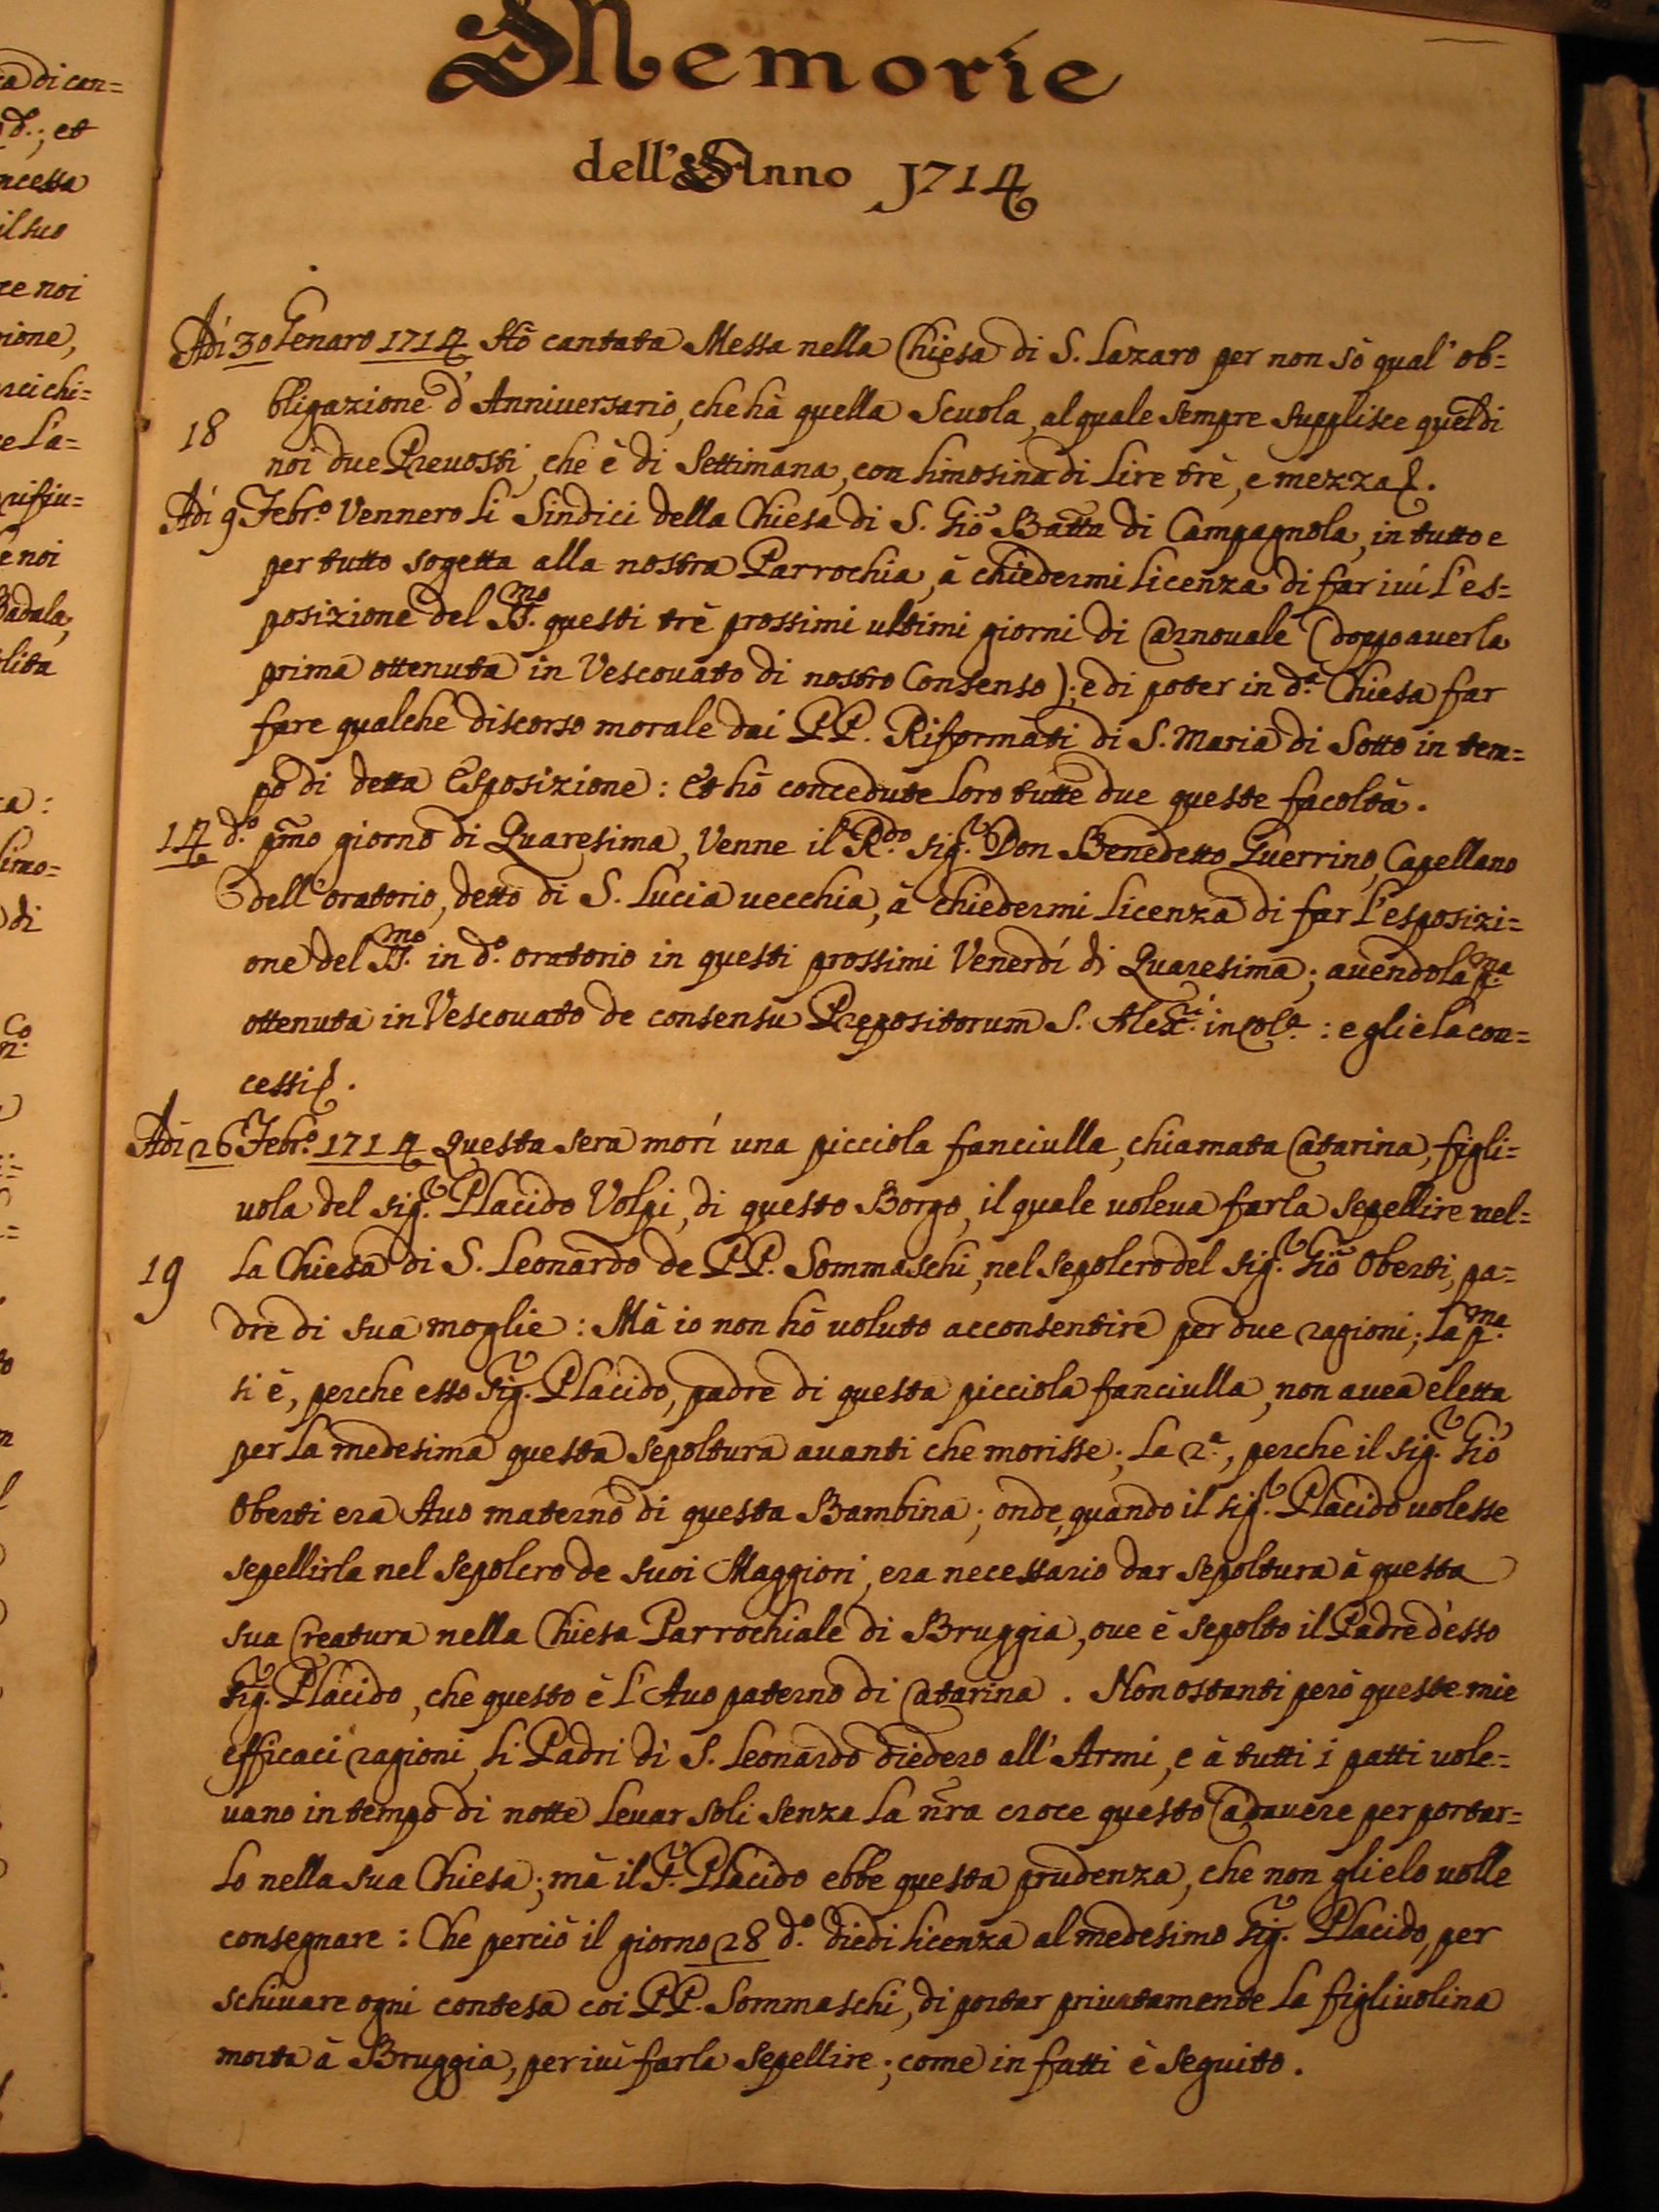 Memorie
dell'Anno 1714
Adi 30 Genaro 1714 Hò cantata Messa nella Chiesa di S. Lazaro per non sò qual' ob=
bligazione d'Anniuersario, che hà quella Scuola, al quale sempre supplisce quel di
18
noi due Preuosti, che è di Settimana, con limosina di lire trè, e mezza.
Adi 9 Febr.o Vennero li Sindici della Chiesa di S. Giō Batta di Campagnola, in tutto e
per tutto sogetta alla nostra Parrochia, à chiedermi licenza di far iui l'es=
posizione del SS.mo questi trè prossimi ultimi giorni di Carnouale (doppo auerla
prima ottenuta in Vescouato di nostro Consenso); e di poter in d.a Chiesa far
fare qualche discorso morale dai PP. Riformati di S. Maria di Sotto in tem=
po di detta Esposizione: Et hò concedute loro tutte due queste facoltà.
14 d.o p̄mo giorno di Quaresima, Venne il R.do sig.r Don Benedetto Guerrino, Capellano
dell'oratorio, detto di S. Lucia uecchia, à chiedermi licenza di far l'esposizi=
one del SS.mo in d.o oratorio in questi prossimi Venerdí di Quaresima; auendola p.ma
ottenuta in Vescouato de consensu Prepositorum S. Alex.ri in Col.a: e gliela con=
cessi.
Adi 26 Febr.o 1714 Questa sera morí una picciola fanciulla, chiamata Catarina, figli=
uola del sig.r Placido Volpi, di questo Borgo, il quale uoleua farla sepellire nel=
19
la Chiesa di S. Leonardo de PP. Sommaschi, nel sepolcro del sig.r Giō Oberti, pa=
dre di sua moglie: Mà io non hò uoluto acconsentire per due ragioni; la p.ma
si è, perche esso Sig.r Placido, padre di questa picciola fanciulla, non auea eletta
per la medesima questa sepoltura auanti che morisse; la 2.a, perche il sig.r Giō
Oberti era Auo materno di questa Bambina; onde, quando il sig.r Placido uolesse
sepellirla nel sepolcro de suoi Maggiori, era necessario dar sepoltura à questa
sua Creatura nella Chiesa Parrochiale di Bruggia, oue è sepolto il Padre d'esso
Sig.r Placido, che questo è l'Auo paterno di Catarina. Non ostanti però queste mie
efficaci ragioni, li Padri di S. Leonardo diedero all'Armi, e à tutti i patti uole=
uano in tempo di notte leuar soli senza la n̄ra croce questo Cadauere per portar=
lo nella sua Chiesa; mà il S.r Placido ebbe questa prudenza, che non glielo uolle
consegnare: Che perciò il giorno 28 d.o diedi licenza al medesimo Sig.r Placido, per
schiuare ogni contesa coi PP. Sommaschi, di portar priuatamente la figliuolina
morta à Bruggia, per iui farla sepellire; come in fatti è seguito.